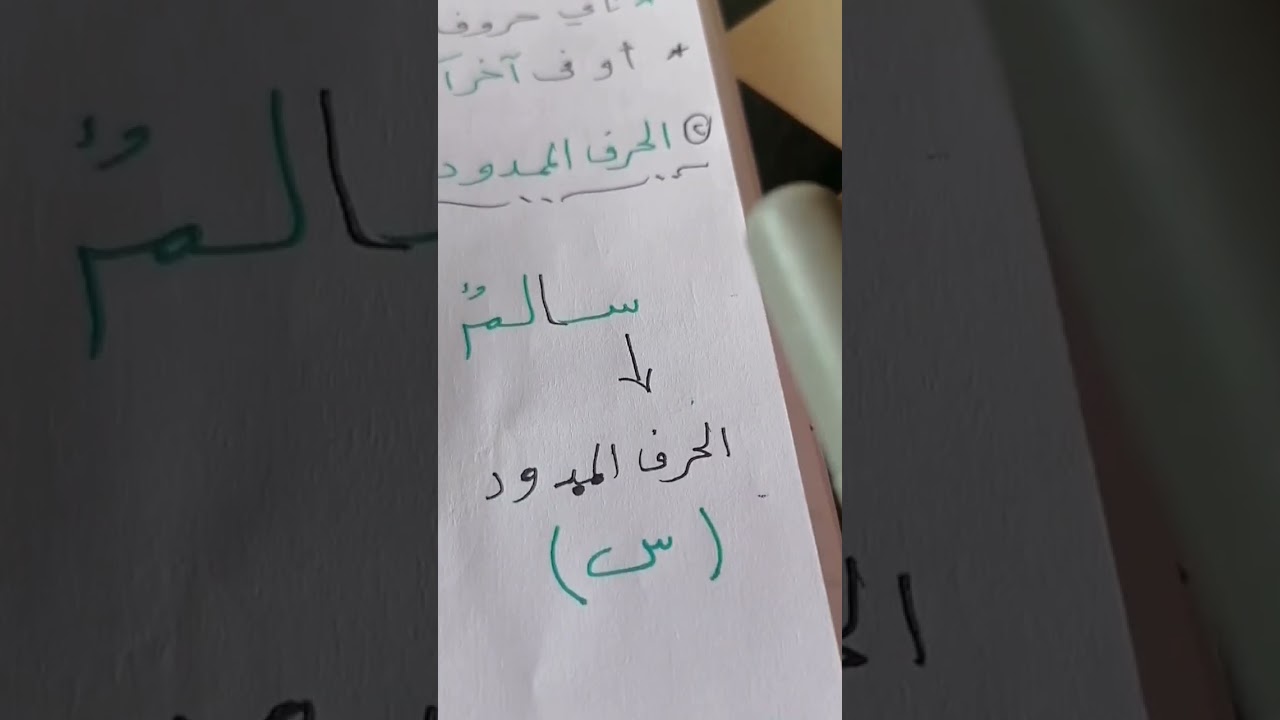 تأتي حروف
* أو في آخر
② الحرف الممدود
سالمٌ
الحرف الممدود
(س)